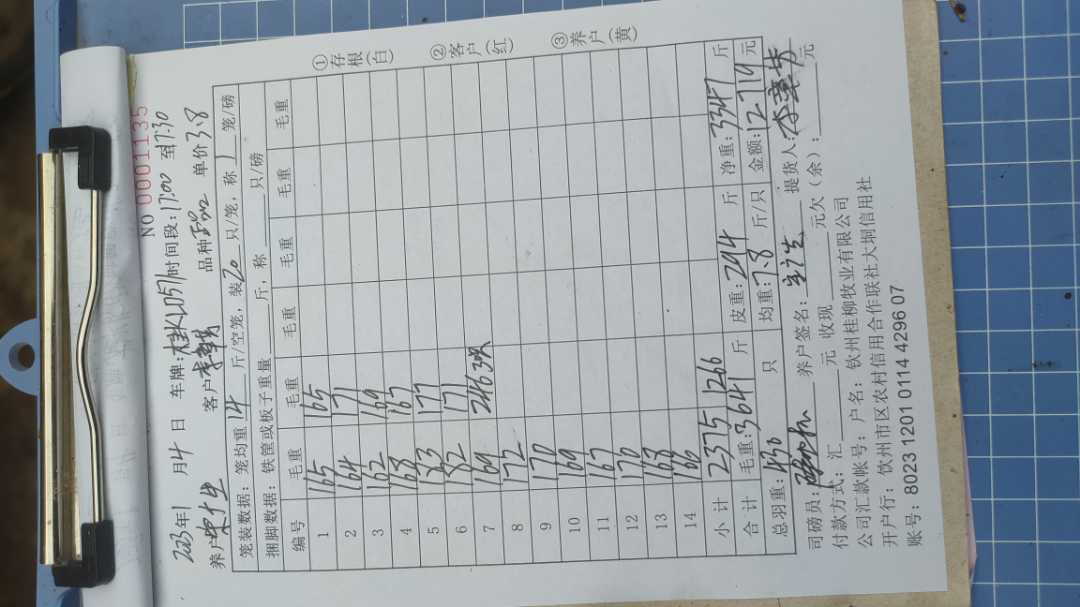 NO 0001135
2023年1月4日 车牌:桂KL0571 时间段:17:00 至17:30
养户 客户 品种 单价3.8
笼装数据:笼均重14斤/空笼,装20只/笼,称1笼/磅
捆脚数据:铁筐或板子重量 斤,称 只/磅
编号 毛重 毛重 毛重 毛重 毛重 毛重
1 165 165
2 164 171
3 162 169
4 168 167
5 183 177
6 182 171
7 169 246 30只
8 172
9 170
10 169
11 167
12 170
13 168
14 166
小计 2375 1266
合计 毛重:3641斤 皮重:294斤 净重:3347斤
总羽重:430只 均重:7.8斤/只 金额:12719元
司磅员: 养户签名: 提货人:
付款方式:汇 元 收现 元欠(余): 元
公司汇款帐号:户名:钦州桂柳牧业有限公司
开户行:饮州市区农村信用合作联社大垌信用社
账号:8023 1201 0114 4296 07
①存根(白)
②客户(红)
③养户(黄)